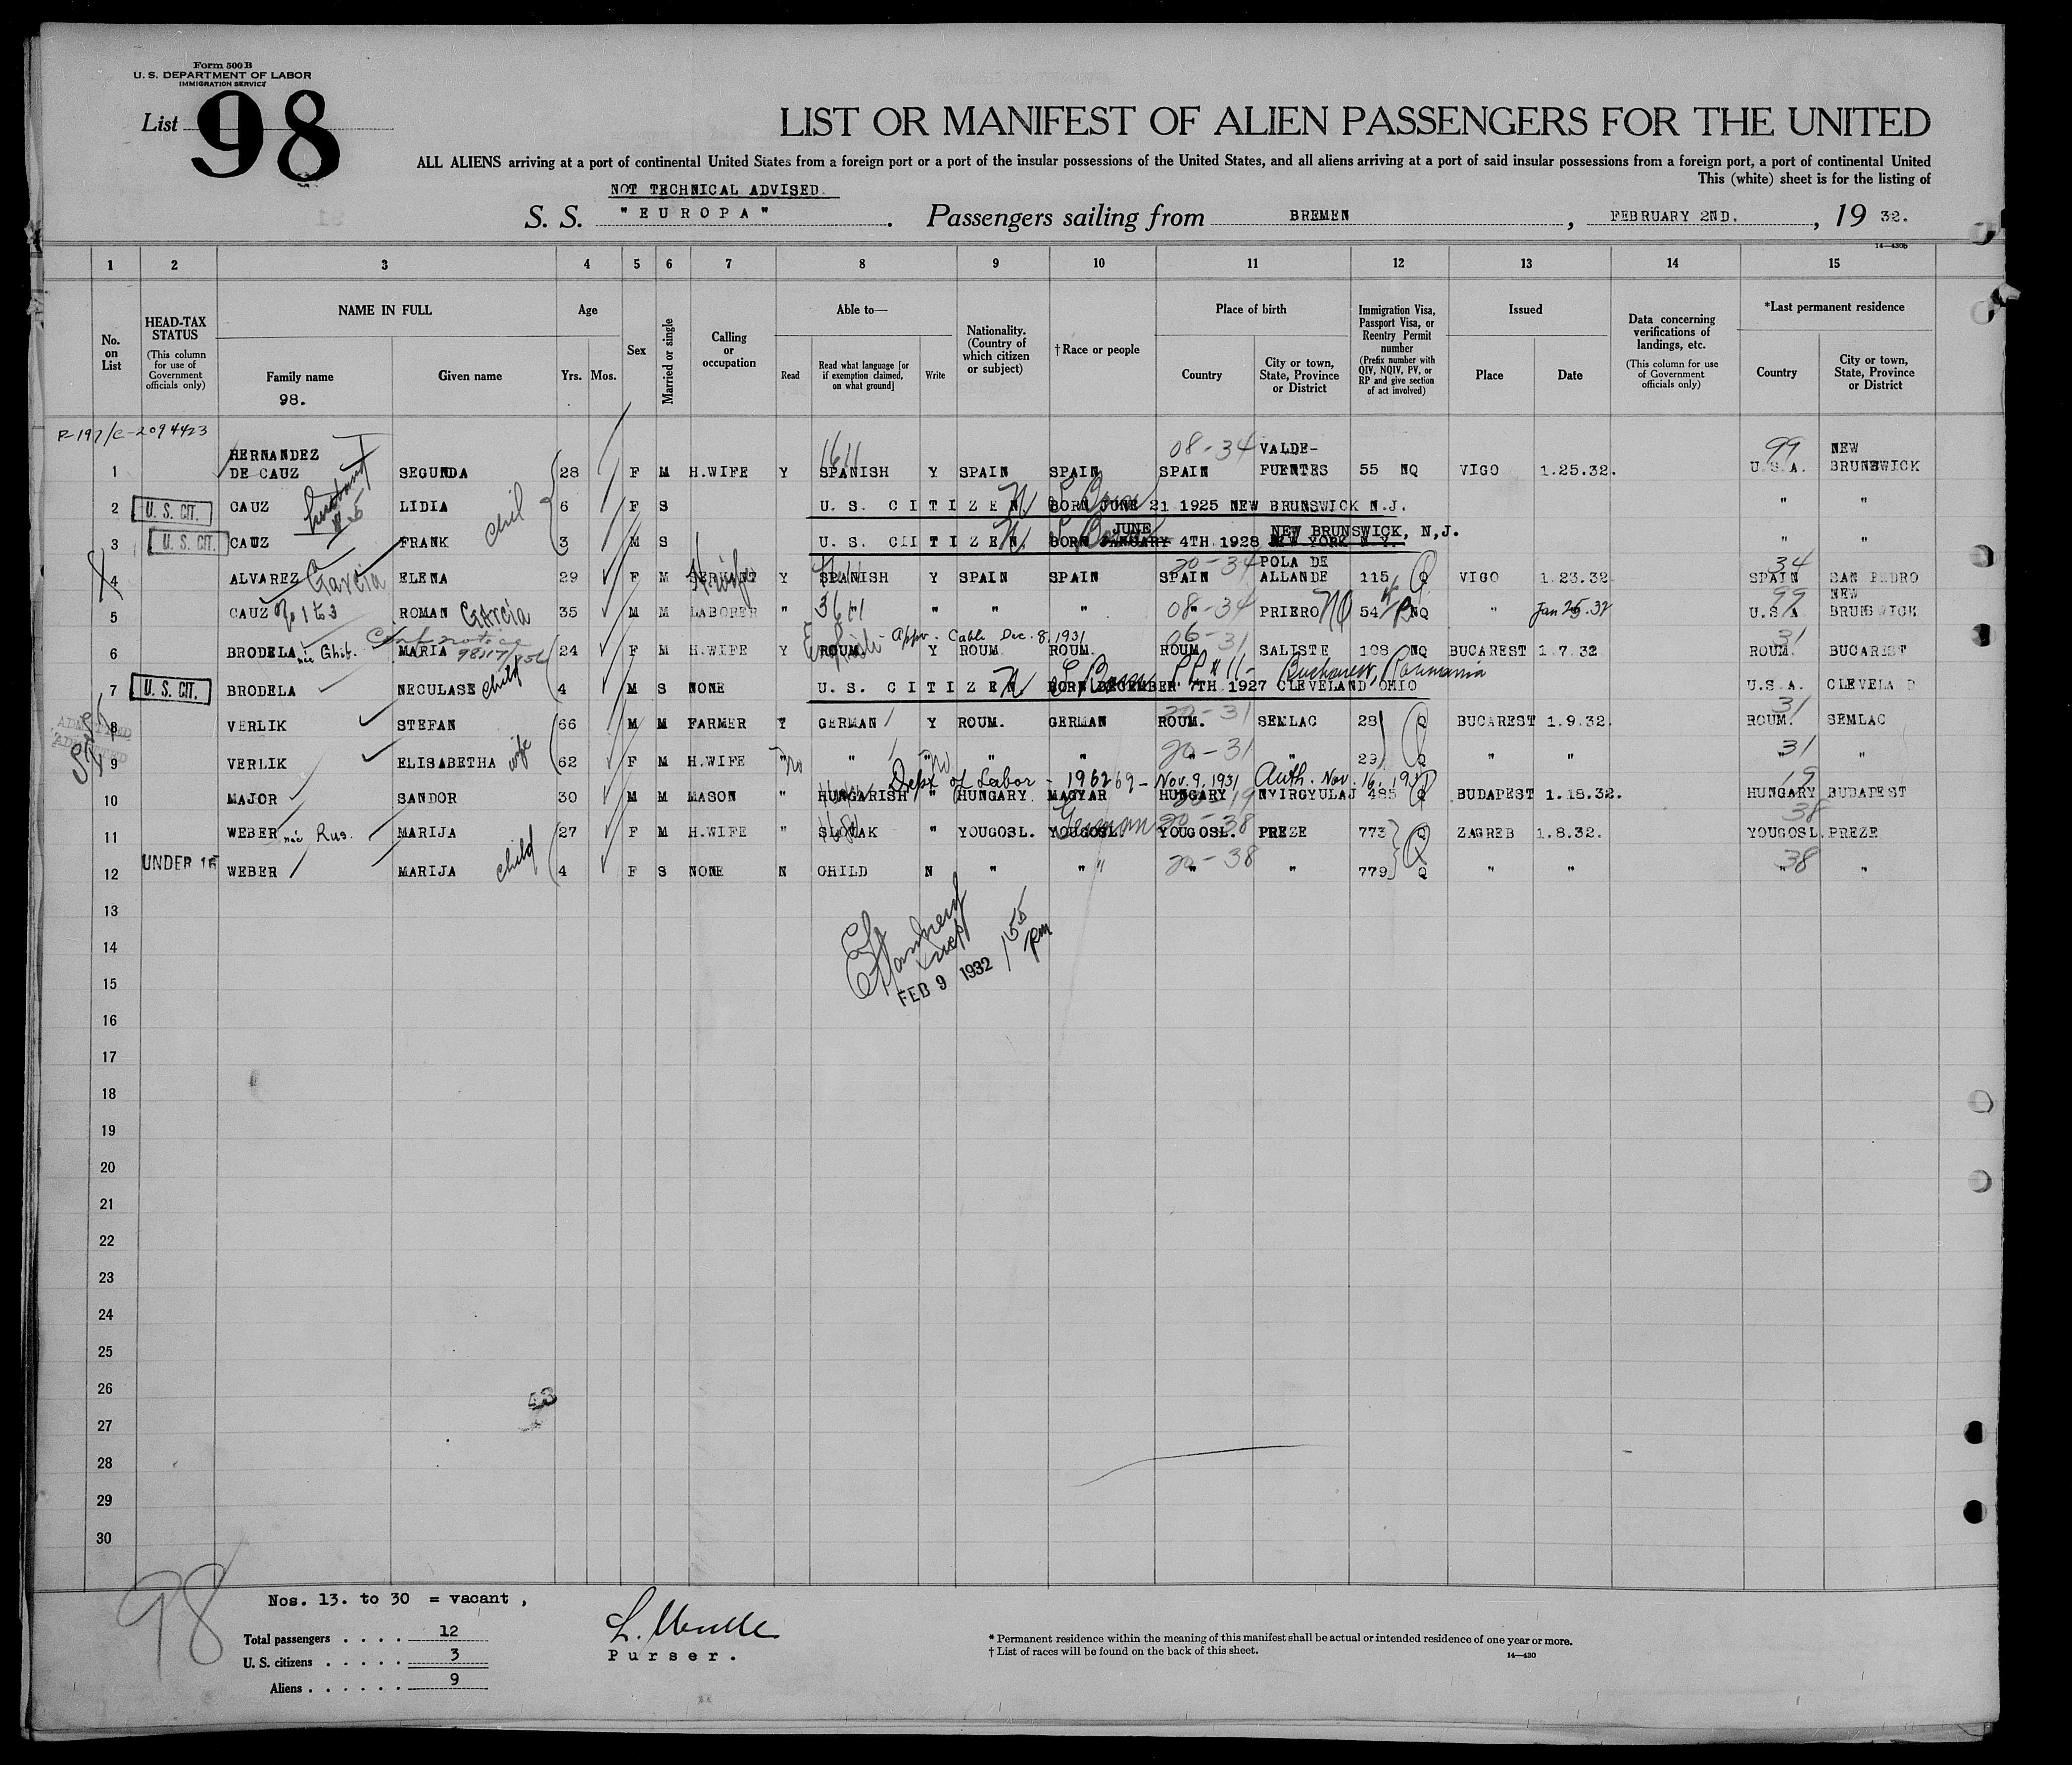 Form 500 B
U. S. DEPARTMENT OF LABOR
IMMIGRATION SERVICE
List 98
LIST OR MANIFEST OF ALIEN PASSENGERS FOR THE UNITED
ALL ALIENS arriving at a port of continental United States from a foreign port or a port of the insular possessions of the United States, and all aliens arriving at a port of said insular possessions from a foreign port, a port of continental United
This (white) sheet is for the listing of
NOT TECHNICAL ADVISED.
S. S. "EUROPA". Passengers sailing from BREMEN, FEBRUARY 2ND., 19 32.
14—430b
1 2 3 4 5 6 7 8 9 10 11 12 13 14 15
No. on List
HEAD-TAX STATUS (This column for use of Government officials only)
NAME IN FULL
Family name
98.
Given name
Age
Yrs. Mos.
Sex
Married or single
Calling or occupation
Able to—
Read
Read what language [or if exemption claimed, on what ground]
Write
Nationality. (Country of which citizen or subject)
†Race or people
Place of birth
Country
City or town, State, Province or District
Immigration Visa, Passport Visa, or Reentry Permit number (Prefix number with QIV, NQIV, PV, or RP and give section of act involved)
Issued
Place
Date
Data concerning verifications of landings, etc. (This column for use of Government officials only)
*Last permanent residence
Country
City or town, State, Province or District
HERNANDEZ 1611 08-34 VALDE- 99 NEW
1 DE CAUZ SEGUNDA 28 F M H.WIFE Y SPANISH Y SPAIN SPAIN SPAIN FUENTES 55 NQ VIGO 1.25.32. U.S.A. BRUNSWICK
2 U. S. CIT. CAUZ LIDIA 6 F S U. S. CITIZEN BORN JUNE 21 1925 NEW BRUNSWICK N.J. " "
JUNE NEW BRUNSWICK, N,J.
3 U. S. CIT. CAUZ FRANK 3 M S U. S. CITIZEN BORN JANUARY 4TH 1928 NEW YORK N.Y. " "
20-34 POLA DE 34
4 ALVAREZ Garcia ELENA 29 F M SERVANT H.wife Y SPANISH Y SPAIN SPAIN SPAIN ALLANDE 115 Q VIGO 1.23.32 SPAIN SAN PEDRO
99 NEW
5 CAUZ 1 to 3 ROMAN Garcia 35 M M LABORER " " " " " 08-34 PRIERO NQ 54 NQ " Jan 25.32 U.S.A BRUNSWICK
Appr. Cable Dec. 8, 1931 06-31 31
6 BRODELA née Ghib. MARIA 24 F M H.WIFE Y ROUM. Y ROUM. ROUM. ROUM SALISTE 108 NQ BUCAREST 1.7.32 ROUM. BUCAREST
Bucharest, Roumania
7 U. S. CIT. BRODELA NECULASE child 4 M S NONE U. S. CITIZEN BORN DECEMBER 7TH 1927 CLEVELAND OHIO U.S.A. CLEVELAND
20-31 31
8 VERLIK STEFAN 66 M M FARMER Y GERMAN Y ROUM. GERMAN ROUM. SEMLAC 28 Q BUCAREST 1.9.32. ROUM. SEMLAC
20-31 31
9 VERLIK ELISABETHA wife 62 F M H.WIFE " no " " no " " " 29 Q " " " "
Dept of Labor - 196269 - Nov. 9, 1931 Auth. Nov. 16, 19
10 MAJOR SANDOR 30 M M MASON " HUNGARISH " HUNGARY. MAGYAR HUNGARY NYIRGYULAJ 485 Q BUDAPEST 1.18.32. HUNGARY BUDAPEST
German 20-38 38
11 WEBER née Rus. MARIJA 27 F M H.WIFE " SLOVAK " YOUGOSL. YOUGOSL. YOUGOSL. PREZE 773 Q ZAGREB 1.8.32. YOUGOSL. PREZE
20-38 38
12 UNDER 16 WEBER MARIJA child 4 F S NONE N CHILD N " " " " 779 Q " " " "
13
FEB 9 1932 1 55 pm
14
15
16
17
18
19
20
21
22
23
24
25
26
27
28
29
30
98
Nos. 13. to 30 = vacant,
Total passengers . . . . 12
U. S. citizens . . . . . 3
Aliens . . . . . . 9
Purser.
* Permanent residence within the meaning of this manifest shall be actual or intended residence of one year or more.
† List of races will be found on the back of this sheet.
14—430